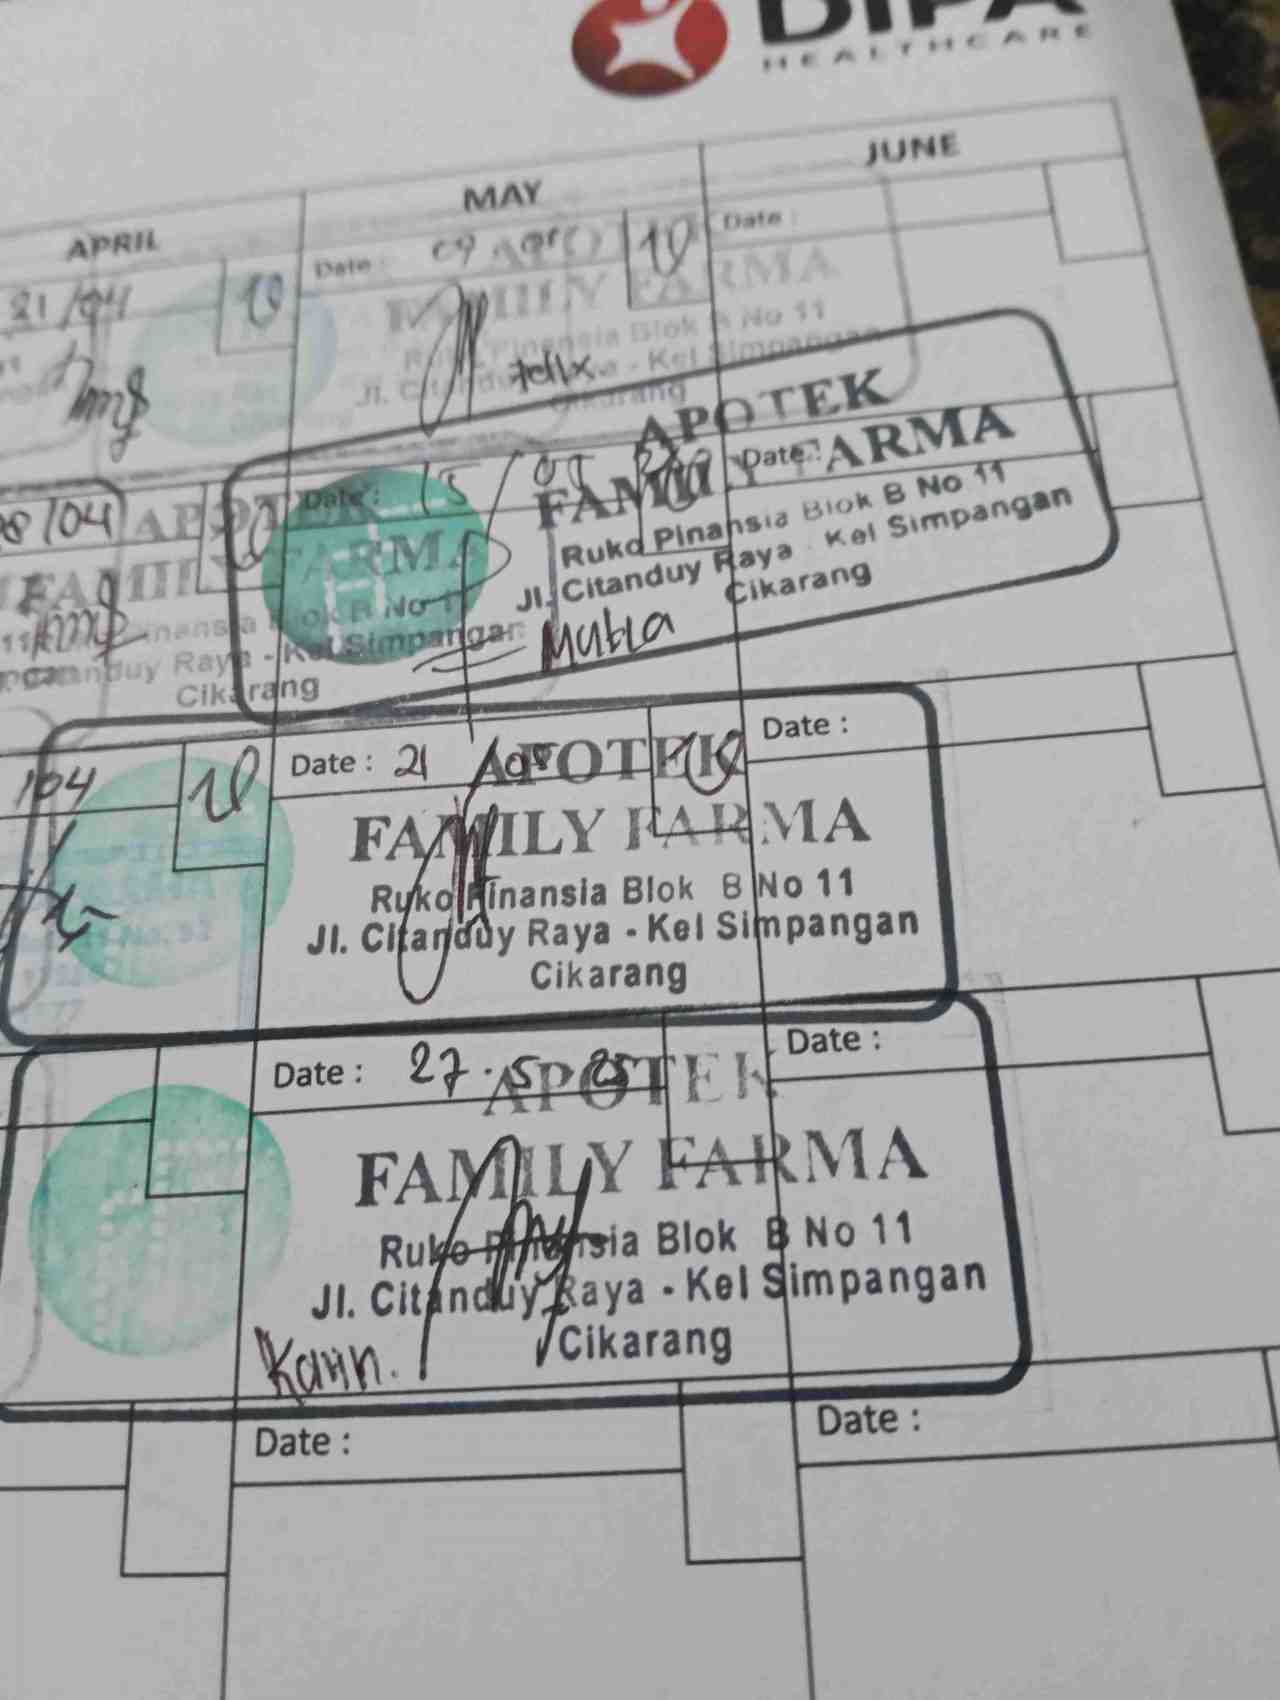 DIPA
HEALTHCARE
APRIL
MAY
JUNE
21/04
10
Date : 09
10
Date :
APOTEK
FAMILY FARMA
Blok B No 11
Jl. Citanduy - Kel Simpangan
Cikarang
Felix
/04
Date : 15/05
Date :
APOTEK
FAMILY FARMA
Ruko Pinansia Blok B No 11
Jl. Citanduy Raya - Kel Simpangan
Cikarang
Mutia
APOTEK
FAMILY FARMA
Pinansia Blok B No 11
Citanduy Raya - Kel Simpangan
Cikarang
/04
10
Date : 21
10
Date :
APOTEK
FAMILY FARMA
Ruko Pinansia Blok B No 11
Jl. Citanduy Raya - Kel Simpangan
Cikarang
Date : 27.5.25
Date :
APOTEK
FAMILY FARMA
Ruko Pinansia Blok B No 11
Jl. Citanduy Raya - Kel Simpangan
Cikarang
Karin.
Date :
Date :